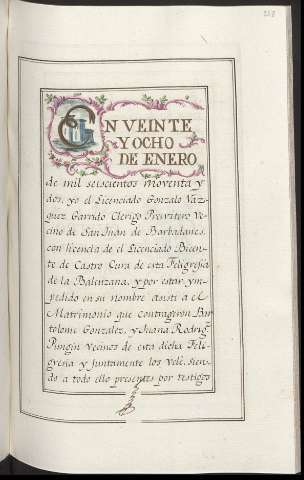 EN VEINTE
Y OCHO
DE ENERO
de mil seiscientos moventa y
dos, yo el Licenciado Gonzalo Vaz-
quez Garrido Clerigo Presvitero Ve-
cino de San Juan de Barbadanes,
con licencia de el Licenciado Bicen-
te de Castro Cura de esta Feligresia
de la Balenzana, y por estar ym-
pedido en su nombre asisti a el
Matrimonio que contrageron Bar-
tolome Gonzalez, y Juana Rodrig.
Pingin Vecinos de esta dicha Feli-
gresia y juntamente los velé, sien-
do a todo ello presentes por testigos